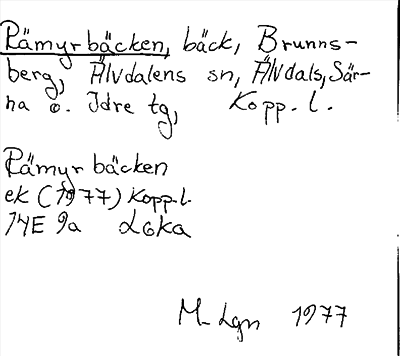 Rämyrbäcken, bäck, Brunns-
berg, Älvdalens sn, Älvdals, Sär-
na o. Idre tg, Kopp. l.
Rämyrbäcken
ek (1977) Kopp.l.
14E 9a Loka
M Lgn 1977